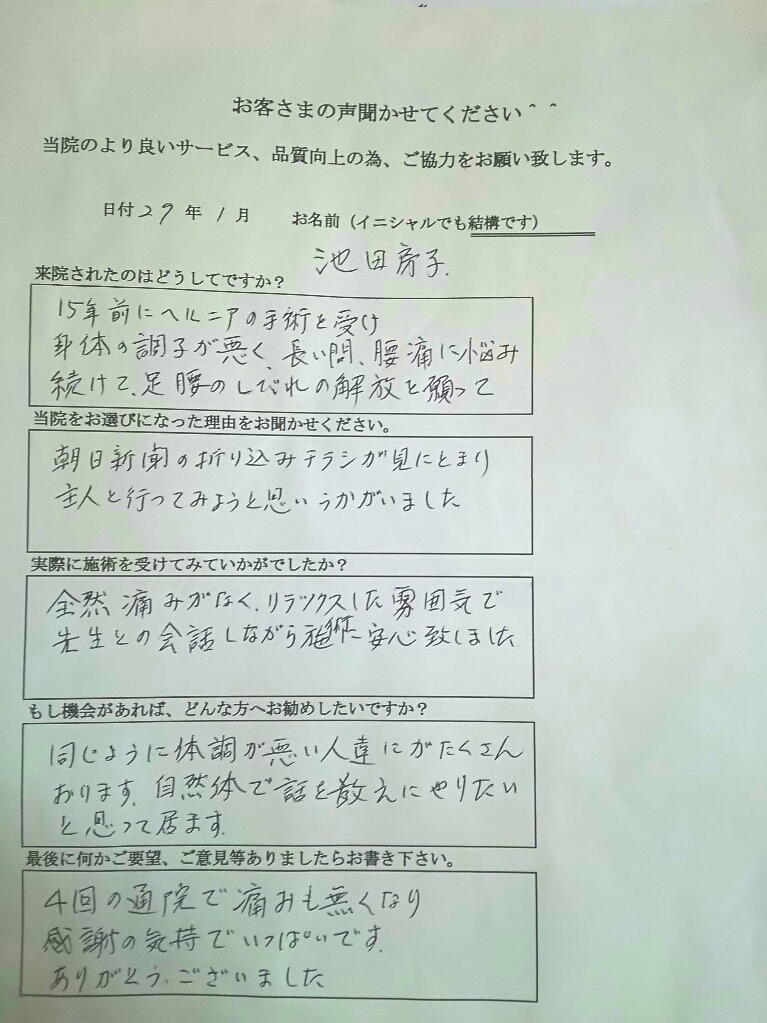 お客さまの声聞かせてください＾＾
当院のより良いサービス、品質向上の為、ご協力をお願い致します。
日付29年1月 お名前（イニシャルでも結構です）
池田房子.
来院されたのはどうしてですか？
15年前にヘルニアの手術を受け
身体の調子が悪く、長い間、腰痛に悩み
続けて、足腰のしびれの解放を願って
当院をお選びになった理由をお聞かせください。
朝日新聞の折り込みチラシが見にとまり
主人と行ってみようと思いうかがいました
実際に施術を受けてみていかがでしたか？
全然痛みがなく、リラックスした雰囲気で
先生との会話しながら施術に安心致しました
もし機会があれば、どんな方へお勧めしたいですか？
同じように体調が悪い人達にがたくさん
おります。自然体で話を教えにやりたい
と思って居ます。
最後に何かご要望、ご意見等ありましたらお書き下さい。
4回の通院で痛みも無くなり
感謝の気持でいっぱいです。
ありがとう、ございました